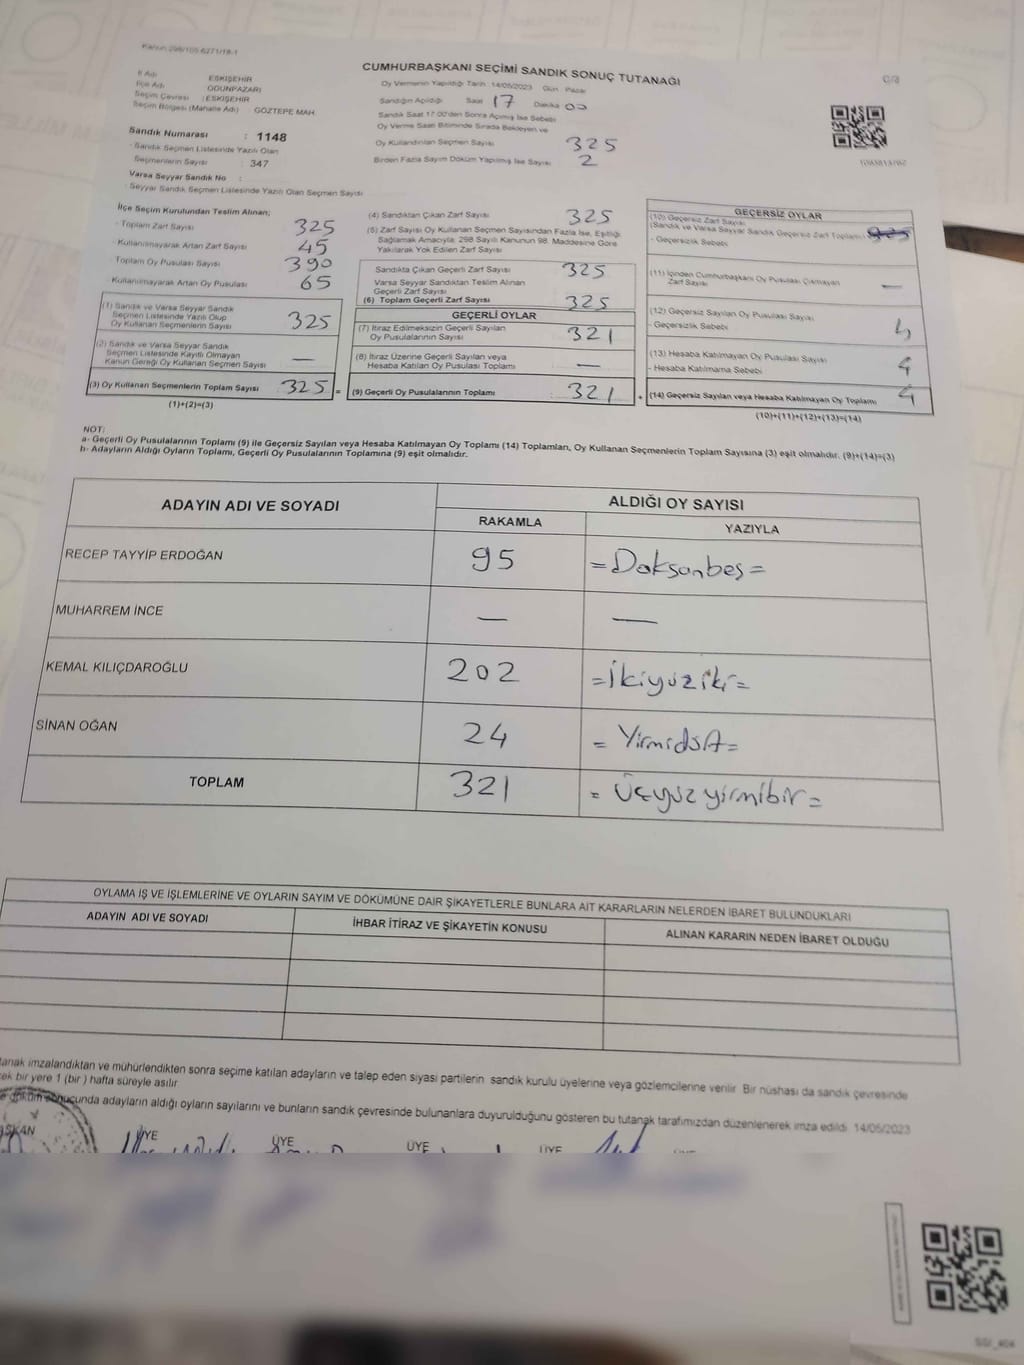 Kanun 298/105-6271/18-1
CUMHURBAŞKANI SEÇİMİ SANDIK SONUÇ TUTANAĞI
İl Adı ESKİŞEHİR
İlçe Adı ODUNPAZARI
Seçim Çevresi : ESKİŞEHİR
Seçim Bölgesi (Mahalle Adı) GÖZTEPE MAH.
Sandık Numarası : 1148
- Sandık Seçmen Listesinde Yazılı Olan
Seçmenlerin Sayısı : 347
Varsa Seyyar Sandık No :
- Seyyar Sandık Seçmen Listesinde Yazılı Olan Seçmen Sayısı
Oy Vermenin Yapıldığı Tarih : 14/05/2023 Gün Pazar
Sandığın Açıldığı Saat 17 Dakika 00
Sandık Saat 17.00'den Sonra Açılmış İse Sebebi
Oy Verme Saati Bitiminde Sırada Bekleyen ve
Oy Kullandırılan Seçmen Sayısı 325
Birden Fazla Sayım Döküm Yapılmış İse Sayısı 2
İlçe Seçim Kurulundan Teslim Alınan;
- Toplam Zarf Sayısı 325
- Kullanılmayarak Artan Zarf Sayısı 45
- Toplam Oy Pusulası Sayısı 390
- Kullanılmayarak Artan Oy Pusulası 65
(1) Sandık ve Varsa Seyyar Sandık
Seçmen Listesinde Yazılı Olup
Oy Kullanan Seçmenlerin Sayısı 325
(2) Sandık ve Varsa Seyyar Sandık
Seçmen Listesinde Kayıtlı Olmayan
Kanun Gereği Oy Kullanan Seçmen Sayısı —
(3) Oy Kullanan Seçmenlerin Toplam Sayısı 325 =
(1)+(2)=(3)
(4) Sandıktan Çıkan Zarf Sayısı 325
(5) Zarf Sayısı Oy Kullanan Seçmen Sayısından Fazla İse, Eşitliği
Sağlamak Amacıyla, 298 Sayılı Kanunun 98. Maddesine Göre
Yakılarak Yok Edilen Zarf Sayısı
Sandıkta Çıkan Geçerli Zarf Sayısı 325
Varsa Seyyar Sandıktan Teslim Alınan
Geçerli Zarf Sayısı
(6) Toplam Geçerli Zarf Sayısı 325
GEÇERLİ OYLAR
(7) İtiraz Edilmeksizin Geçerli Sayılan
Oy Pusulalarının Sayısı 321
(8) İtiraz Üzerine Geçerli Sayılan veya
Hesaba Katılan Oy Pusulası Toplamı —
(9) Geçerli Oy Pusulalarının Toplamı 321 +
GEÇERSİZ OYLAR
(10) Geçersiz Zarf Sayısı
(Sandık ve Varsa Seyyar Sandık Geçersiz Zarf Toplamı)
- Geçersizlik Sebebi
(11) İçinden Cumhurbaşkanı Oy Pusulası Çıkmayan
Zarf Sayısı —
(12) Geçersiz Sayılan Oy Pusulası Sayısı
- Geçersizlik Sebebi
(13) Hesaba Katılmayan Oy Pusulası Sayısı 4
- Hesaba Katılmama Sebebi
(14) Geçersiz Sayılan veya Hesaba Katılmayan Oy Toplamı 4
(10)+(11)+(12)+(13)=(14)
NOT:
a- Geçerli Oy Pusulalarının Toplamı (9) ile Geçersiz Sayılan veya Hesaba Katılmayan Oy Toplamı (14) Toplamları, Oy Kullanan Seçmenlerin Toplam Sayısına (3) eşit olmalıdır. (9)+(14)=(3)
b- Adayların Aldığı Oyların Toplamı, Geçerli Oy Pusulalarının Toplamına (9) eşit olmalıdır.
ADAYIN ADI VE SOYADI ALDIĞI OY SAYISI
RAKAMLA YAZIYLA
RECEP TAYYİP ERDOĞAN 95 =Doksanbeş=
MUHARREM İNCE — —
KEMAL KILIÇDAROĞLU 202 =İkiyüziki=
SİNAN OĞAN 24 = Yirmidört=
TOPLAM 321 = Üçyüzyirmibir=
OYLAMA İŞ VE İŞLEMLERİNE VE OYLARIN SAYIM VE DÖKÜMÜNE DAİR ŞİKAYETLERLE BUNLARA AİT KARARLARIN NELERDEN İBARET BULUNDUKLARI
ADAYIN ADI VE SOYADI İHBAR İTİRAZ VE ŞİKAYETİN KONUSU ALINAN KARARIN NEDEN İBARET OLDUĞU
tanak imzalandıktan ve mühürlendikten sonra seçime katılan adayların ve talep eden siyasi partilerin sandık kurulu üyelerine veya gözlemcilerine verilir. Bir nüshası da sandık çevresinde
ek bir yere 1 (bir) hafta süreyle asılır.
e döküm sonucunda adayların aldığı oyların sayılarını ve bunların sandık çevresinde bulunanlara duyurulduğunu gösteren bu tutanak tarafımızdan düzenlenerek imza edildi. 14/05/2023
AŞKAN ÜYE ÜYE ÜYE ÜYE